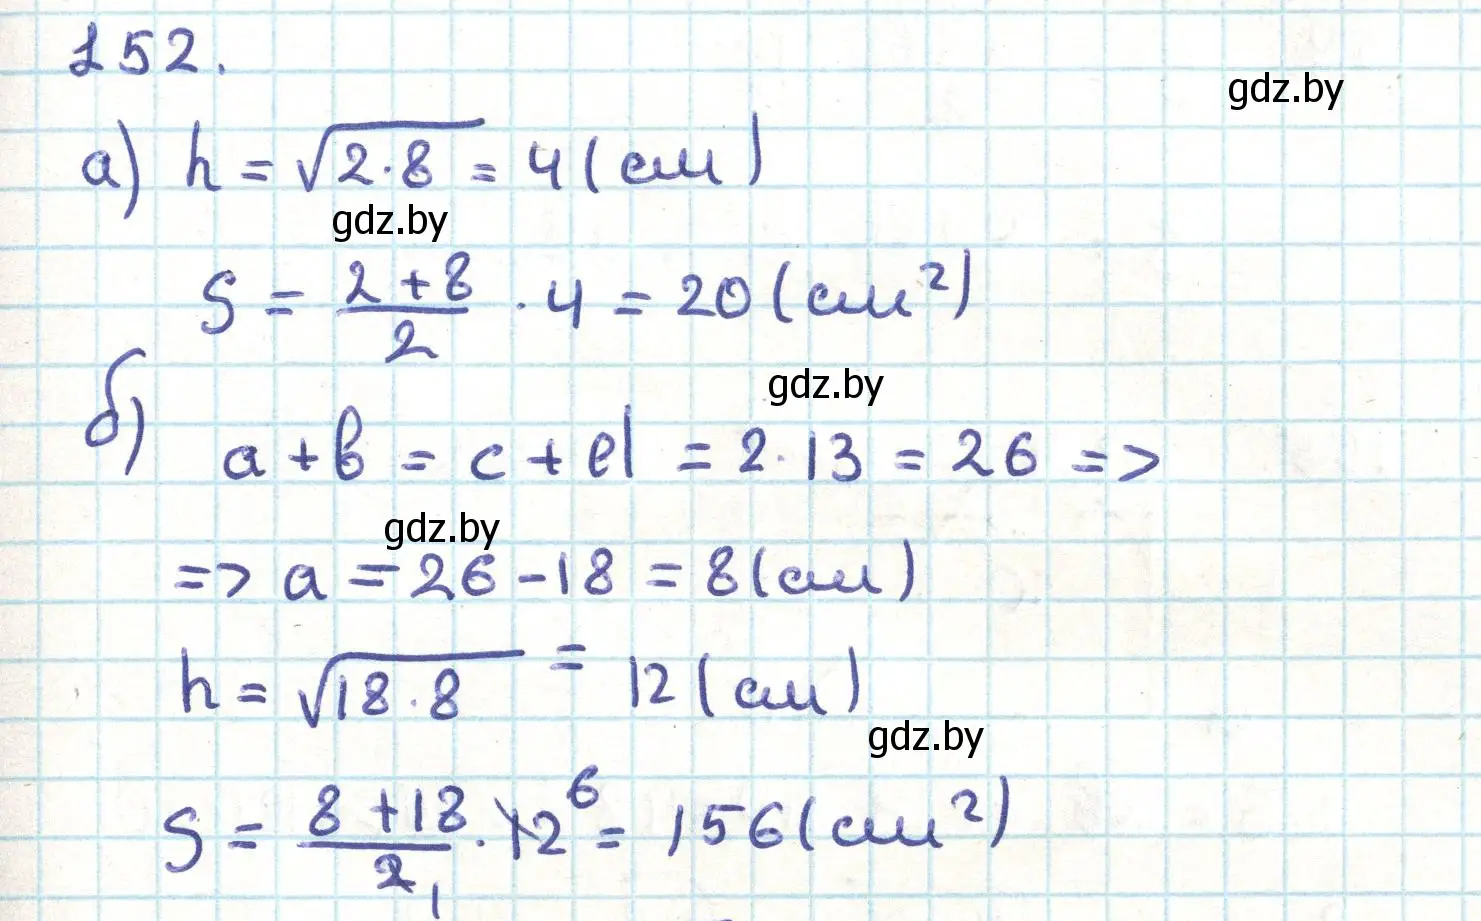 152.
gdz.by
а) h = √2·8 = 4 (см)
gdz.by
S = (2+8)/2 · 4 = 20 (см²)
gdz.by
б) a + b = c + d = 2·13 = 26 =>
gdz.by
=> a = 26 - 18 = 8 (см)
h = √18·8 = 12 (см)
gdz.by
S = (8+18)/2 1 · 12 6 = 156 (см²)